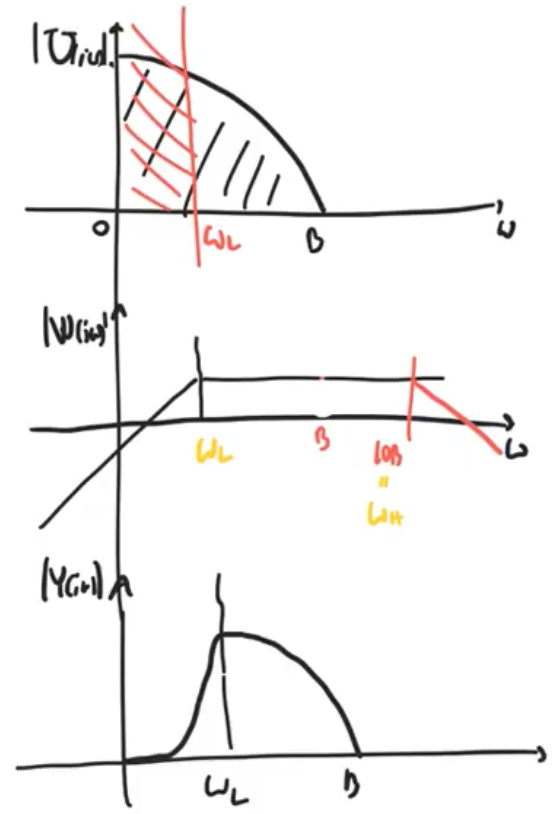 |U(iω)|
0 ωL B ω
|W(iω)|
ωL B 10B ω
"
ωH
|Y(iω)|
ωL B